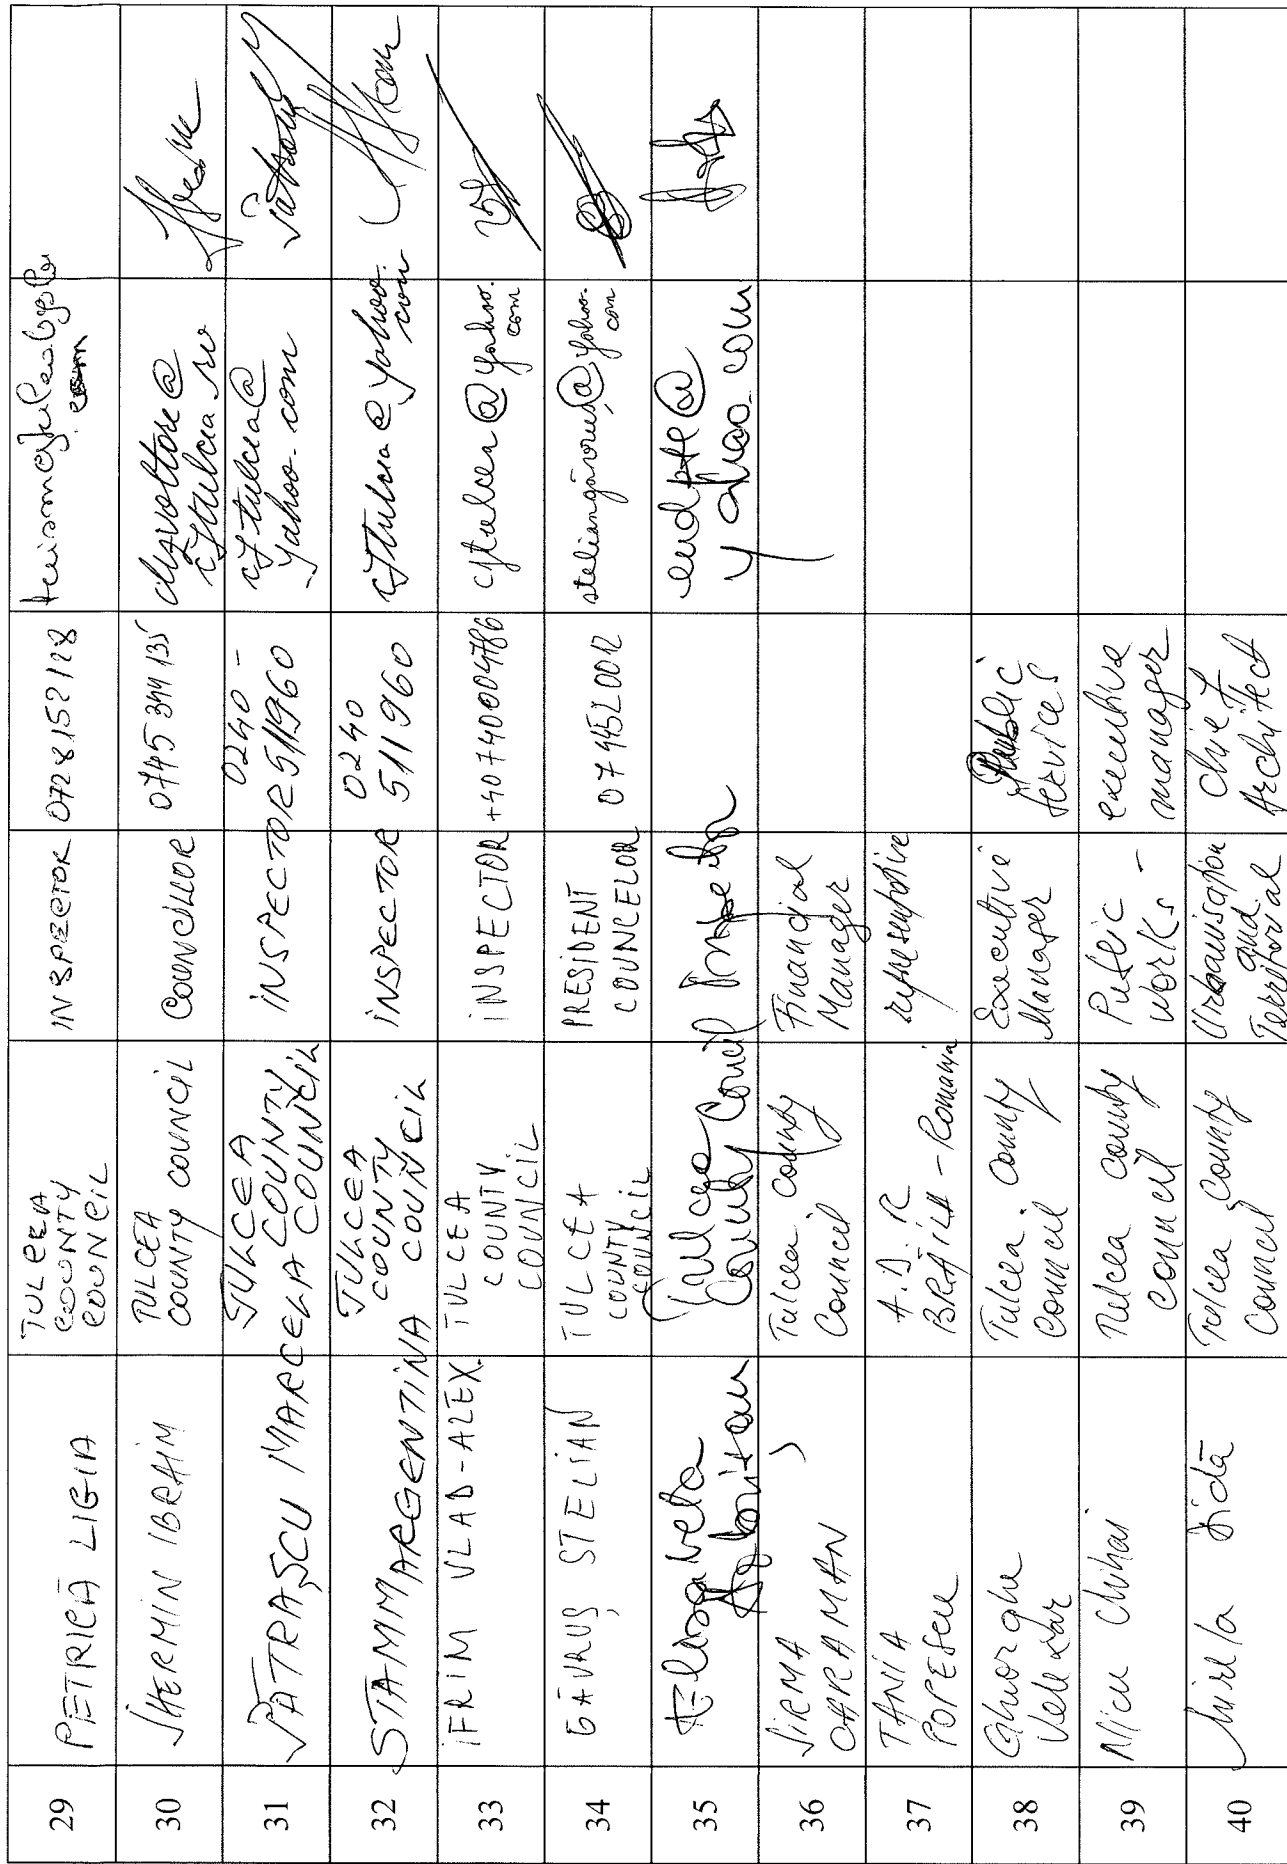 29
PETRICĂ LIGIA
TULCEA
COUNTY
COUNCIL
INSPECTOR
0728152128
30
SHERMIN IBRAIM
TULCEA
COUNTY COUNCIL
COUNCILLOR
0745 344 135
31
PĂTRAȘCU MARCELA
TULCEA
COUNTY
COUNCIL
INSPECTOR
0240-
511960
cjtulcea@
yahoo.com
32
STAMM ARGENTINA
TULCEA
COUNTY
COUNCIL
INSPECTOR
0240
511960
cjtulcea@yahoo.
com
33
IFRIM VLAD-ALEX.
TULCEA
COUNTY
COUNCIL
INSPECTOR
cjtulcea@yahoo.
com
34
GĂVRUȘ STELIAN
TULCEA
COUNTY
COUNCIL
PRESIDENT
COUNCELOR
@yahoo.
com
35
Elisabeta
Tulcea
County Council
yahoo.com
36
SIRMA
CARAMAN
Tulcea County
Council
Financial
Manager
37
TANIA
POPESCU
A.D.R
BRĂILA - Romania
representative
38
Gheorghe
Tulcea County
Council
Executive
Manager
Public
Services
39
Nicu Mihai
Tulcea County
Council
Public
Works -
executive
manager
40
Mirela
Tulcea County
Council
Urbanisation
and
Territorial
Chief
Architect